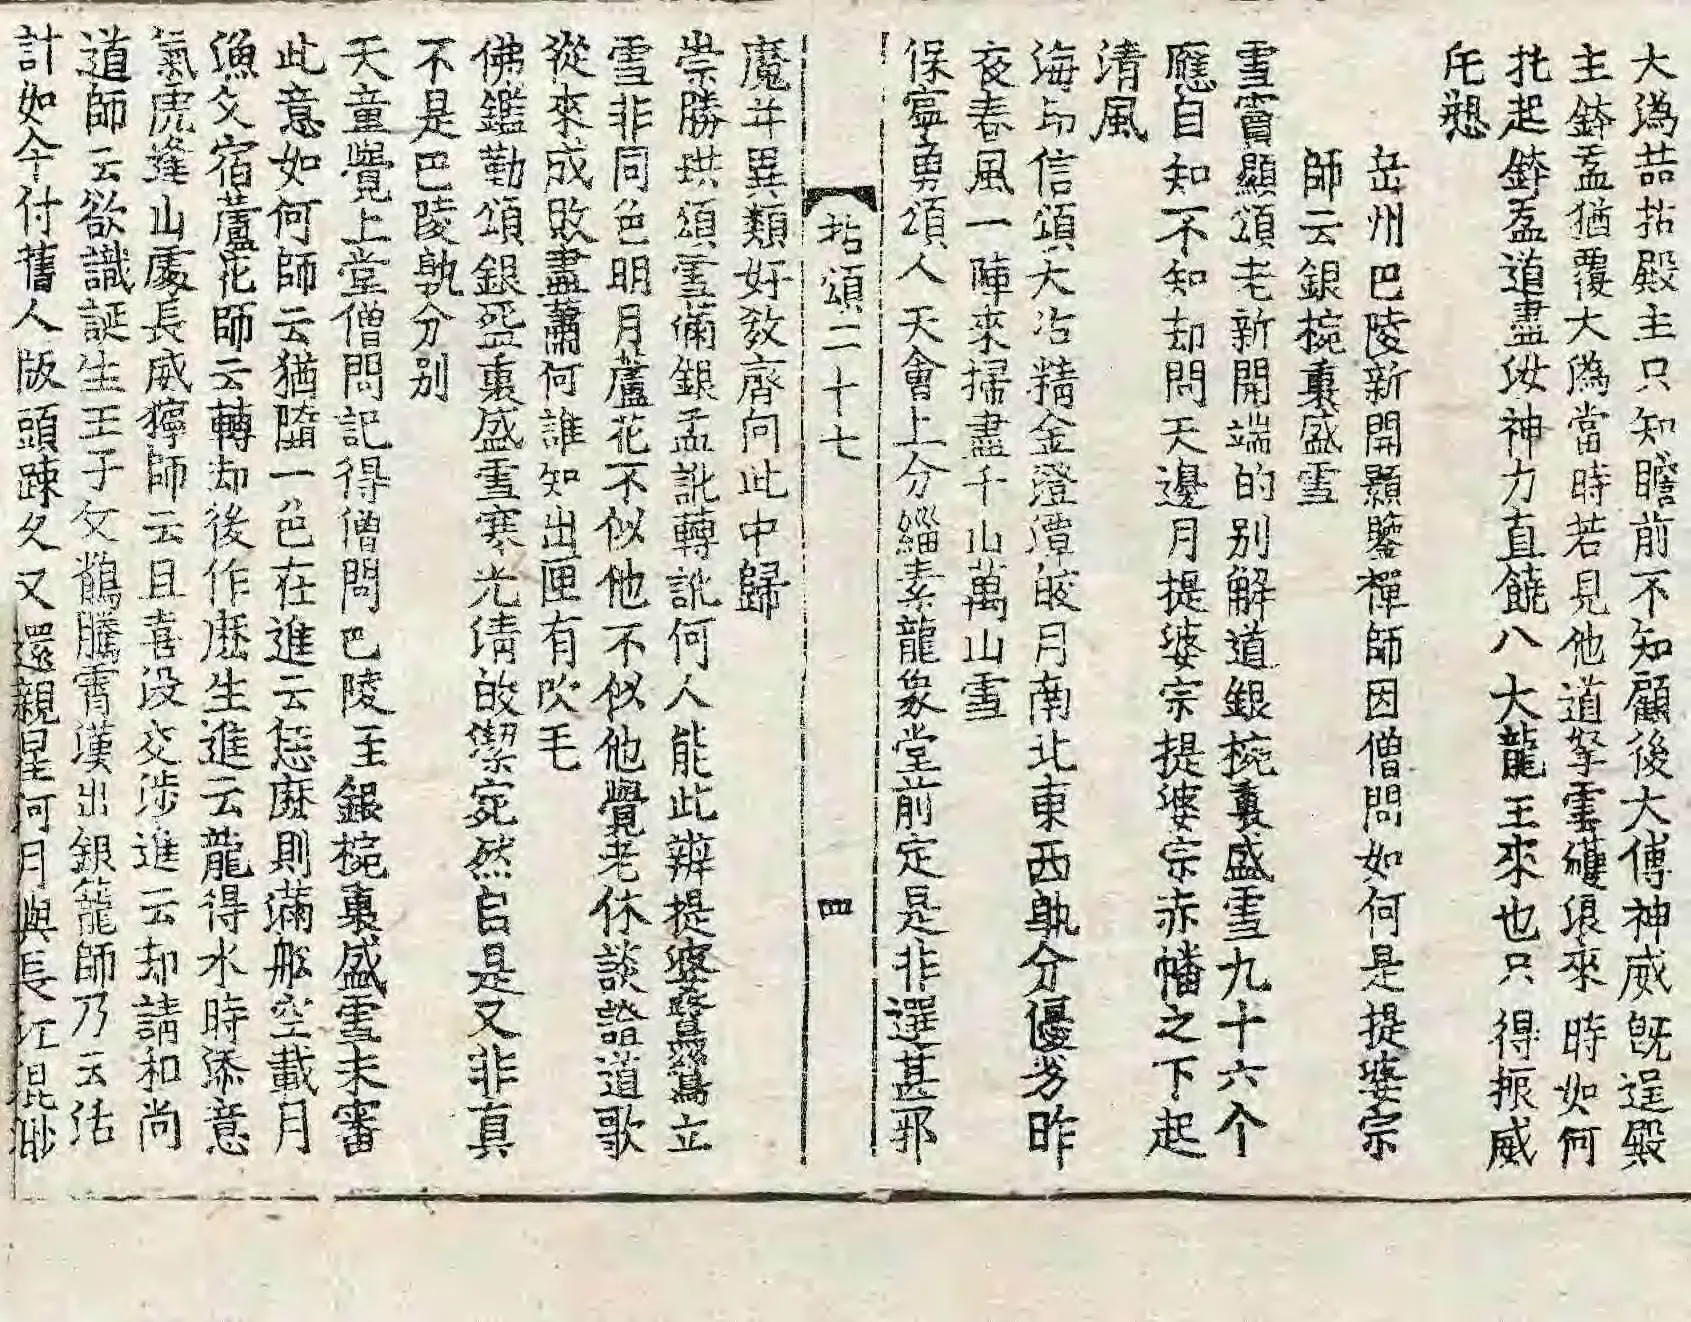 大溈喆拈殿主只知瞻前不知顧後大傅神威旣逞殿
主鉢盂猶覆大溈當時若見他道拏雲攫浪來時如何
托起鉢盂道盡汝神力直饒八大龍王來也只得振威
乇愬
岳州巴陵新開顥鑒禪師因僧問如何是提婆宗
師云銀椀裏盛雪
雪竇顯頌老新開端的別解道銀椀裏盛雪九十六个
應自知不知却問天邊月提婆宗提婆宗赤幡之下起
清風
海印信頌大冶精金澄潭皎月南北東西孰分優劣昨
夜春風一陣來掃盡千山萬山雪
保寧勇頌人天會上分緇素龍象堂前定是非選甚邪
拈頌二十七 四
魔并異類好教齊向此中歸
崇勝珙頌雪滿銀盂訛轉訛何人能此辨提婆鷺鷥立
雪非同色明月蘆花不似他不似他覺老休談證道歌
從來成敗盡蕭何誰知出匣有吹毛
佛鑑勤頌銀盌裏盛雪寒光淸皎潔宛然自是又非真
不是巴陵孰分别
天童覺上堂僧問記得僧問巴陵至銀椀裏盛雪未審
此意如何師云猶墮一色在進云恁麽則滿舩空載月
漁父宿蘆花師云轉却後作麽生進云龍得水時添意
氣虎逢山處長威獰師云且喜没交涉進云却請和尚
道師云欲識誕生王子父鶴騰霄漢出銀籠師乃云活
計如今付舊人版頭踈久又還親星河月與長江混眇